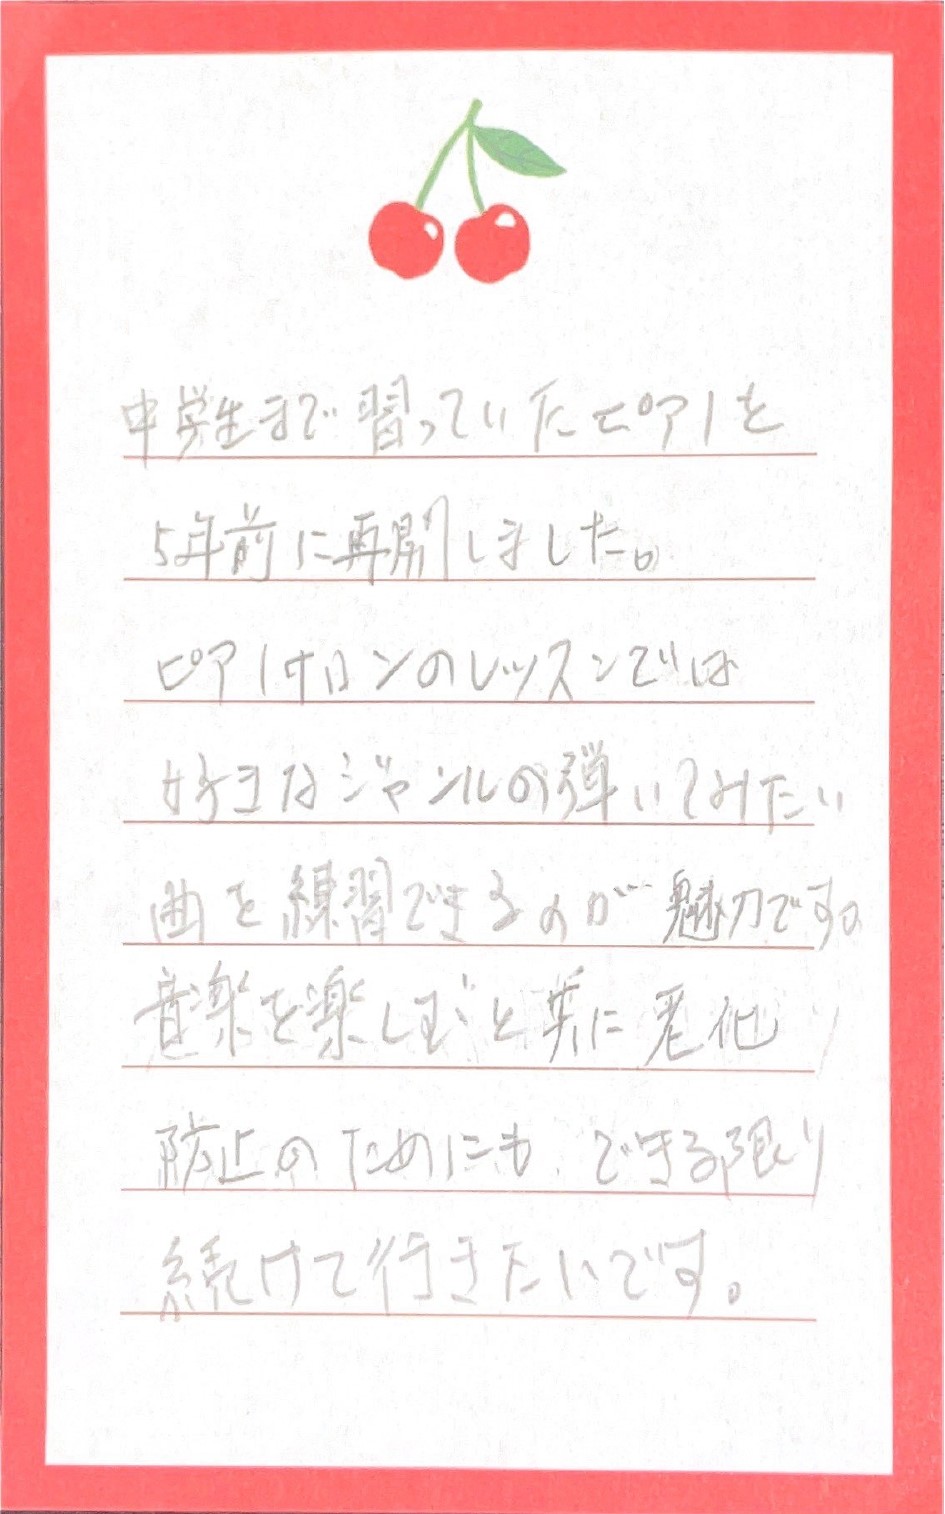 中学生まで習っていたピアノを
5年前に再開しました。
ピアノサロンのレッスンでは
好きなジャンルの弾いてみたい
曲を練習できるのが魅力です。
音楽を楽しむと共に老化
防止のためにも できる限り
続けて行きたいです。